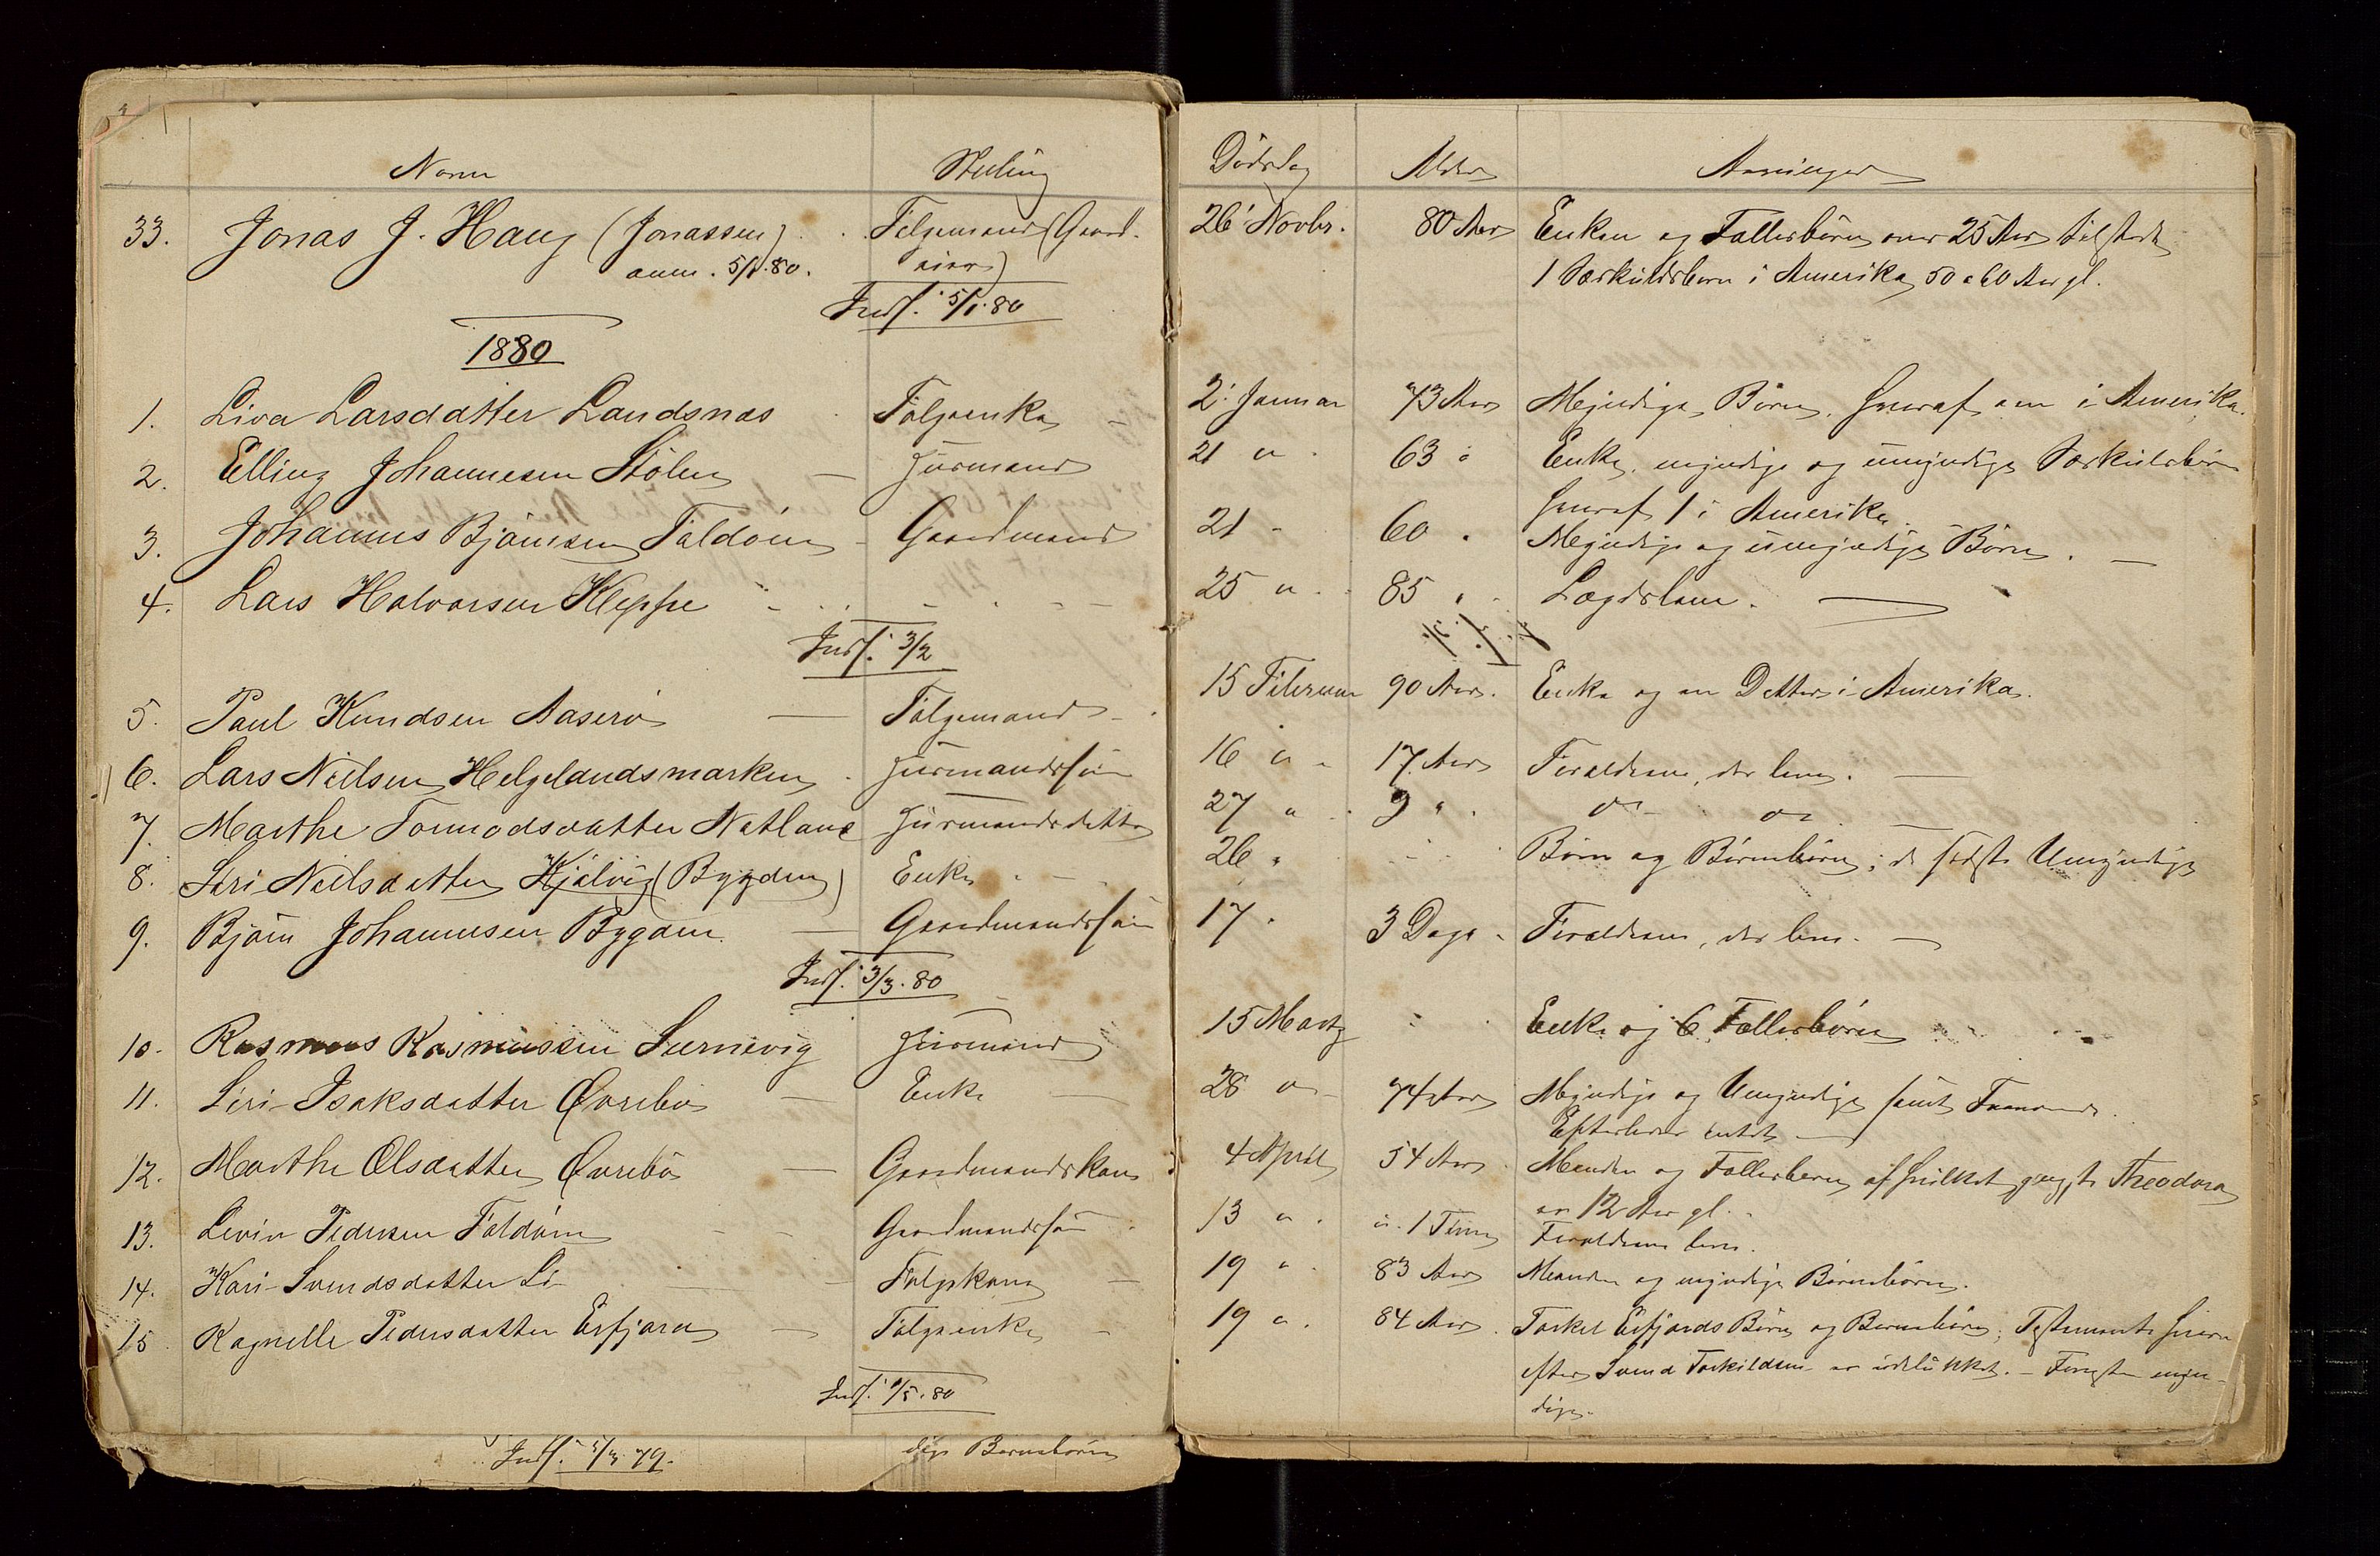 Navn Stilling Dødsdag Alder Arvinger
33. Jonas J. Haug (Jonassen) Følgemand (Gaard- 26' Novbr. 80 Aar Enken og Fællesbørn over 25 Aar tilstede
anm. 5/1.80. eier) 1 Særkuldsbarn i Amerika, 50 a 60 Aar gl.
Indf. 5/1.80
1880
1. Liva Larsdatter Landsnæs Følgeenke 2' Januar 73 Aar Myndige Børn, hvoraf en i Amerika.
2. Elling Johannesen Stølen Huusmand 21 " 63 " Enke, myndige og umyndige Særkuldsbørn
hvoraf 1 i Amerika.
3. Johannes Bjørnsen Foldøen Gaardmand 21 " 60 " Myndige og umyndige Børn.
4. Lars Halvorsen Kleppe 25 " 85 " Lægdslem.
Indf. 3/2
5. Paul Knudsen Aaserø Følgemand 15 Februar 90 Aar. Enke og en Datter i Amerika.
6. Lars Nilsen Helgelandsmarken Huusmandssøn 16 " 17 Aar Forældrene, der lever.
7. Marthe Tormodsdatter Natland Huusmandsdatter 27 " 9 " do do
8. Siri Nilsdatter Hjølvig (Bygden) Enke 26 " Børn og Børnebørn; de sidste Umyndige
9. Bjørn Johannesen Bygden Gaardmandssøn 17 " 3 Dage Forældrene, der lever.
Indf. 3/3.80
10. Rasmus Rasmussen Surnevig Huusmand 15 Marts Enke og 6 Fællesbørn
11. Siri Isaksdatter Øvrebø Enke 28 " 74 Aar Myndige og Umyndige samt
Efterlever intet
12. Marthe Olsdatter Øvrebø Gaardmandskone 4 April 54 Aar Manden og Fællesbørn af hvilket yngste Theodora
er 12 Aar gl.
13. Levin Pedersen Foldøen Gaardmandssøn 13 " 1 Time Forældrene lever.
14. Kari Svendsdatter Li Følgekone 19 " 83 Aar Manden og myndige Børnebørn.
15. Ragnelle Pedersdatter Erfjord Følgeenke 19 " 84 Aar Torkel Erfjords Børn og Børnebørn; Testamente hvori
efter Svend Torkildsen er udelukket. –
dige.
Indf. 1/5.80
Indf. 5/3.79. dige Børnebørn